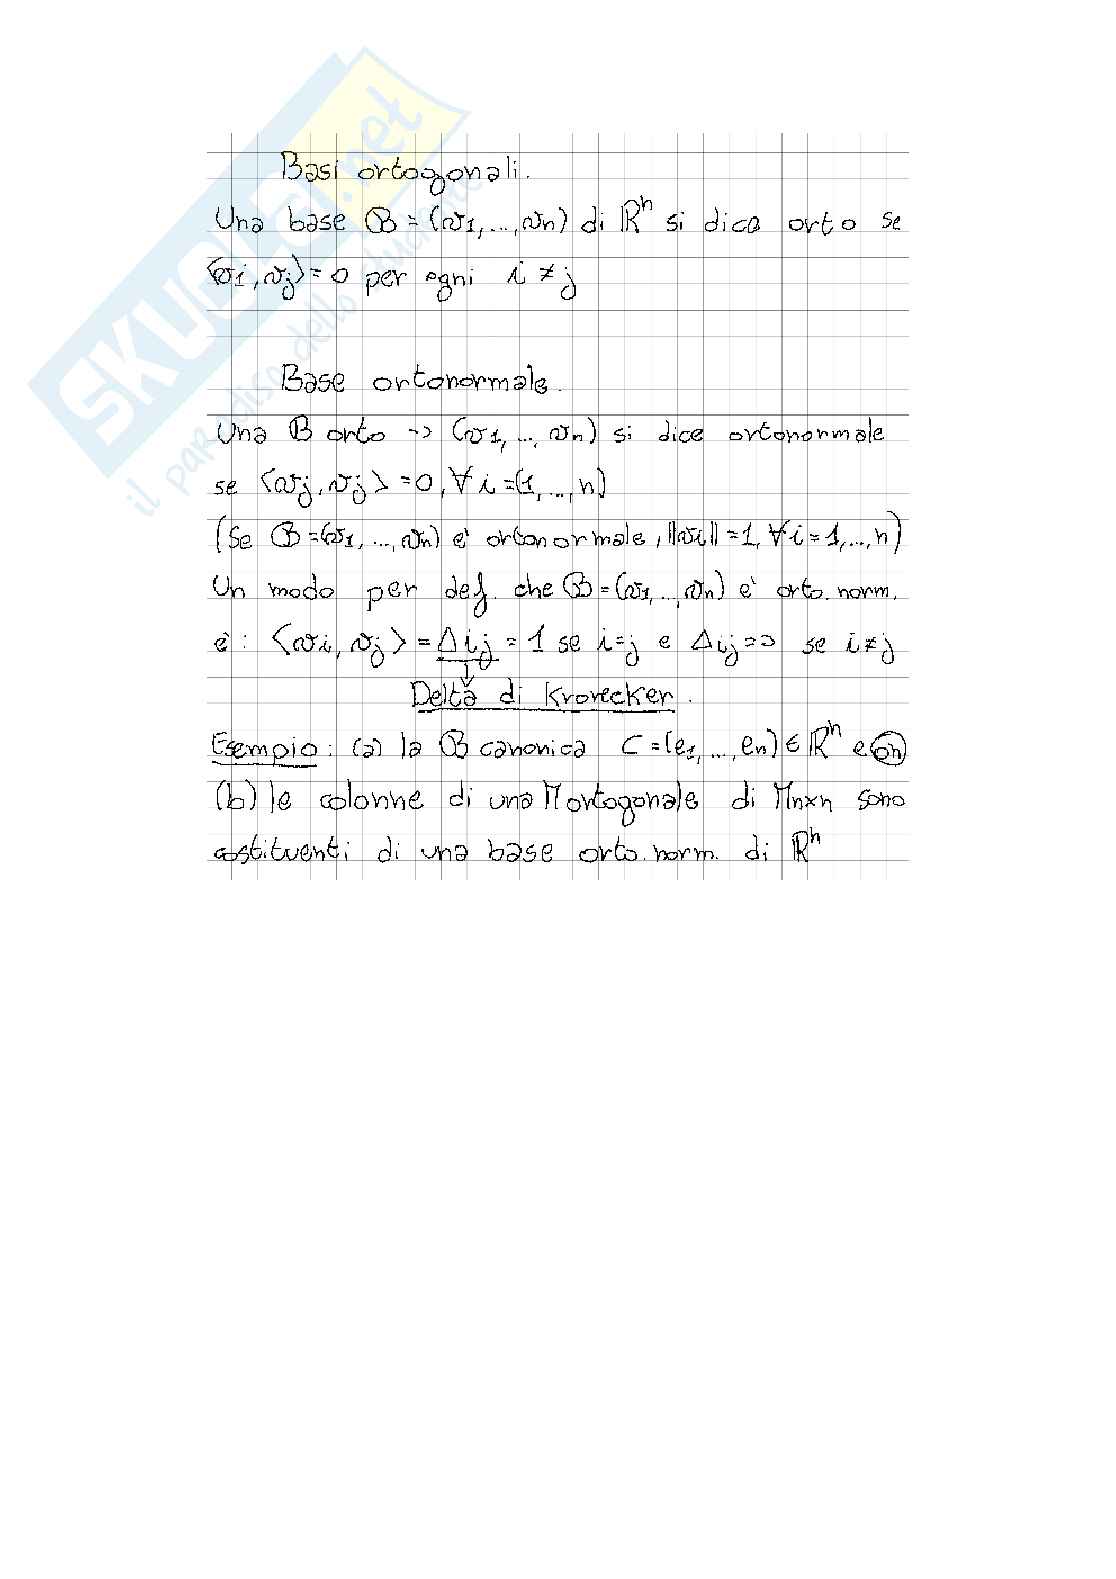 SKUOLA.net
il paradiso dello studente
Basi ortogonali.
Una base B = (v1, ..., vn) di ℝⁿ si dice orto se
⟨vi, vj⟩ = 0 per ogni i ≠ j
Base ortonormale.
Una B orto -> (v1, ..., vn) si dice ortonormale
se ⟨vj, vj⟩ = 0, ∀ i = (1, ..., n)
(Se B = (v1, ..., vn) e' ortonormale, ||vi|| = 1, ∀ i = 1, ..., n)
Un modo per def. che B = (v1, ..., vn) e' orto.norm.
è : ⟨vi, vj⟩ = Δij = 1 se i=j e Δij => se i≠j
Delta di Kronecker.
Esempio : (a) la B canonica C = (e1, ..., en) ∈ ℝⁿ e on
(b) le colonne di una M ortogonale di Mn×n sono
costituenti di una base orto.norm. di ℝⁿ